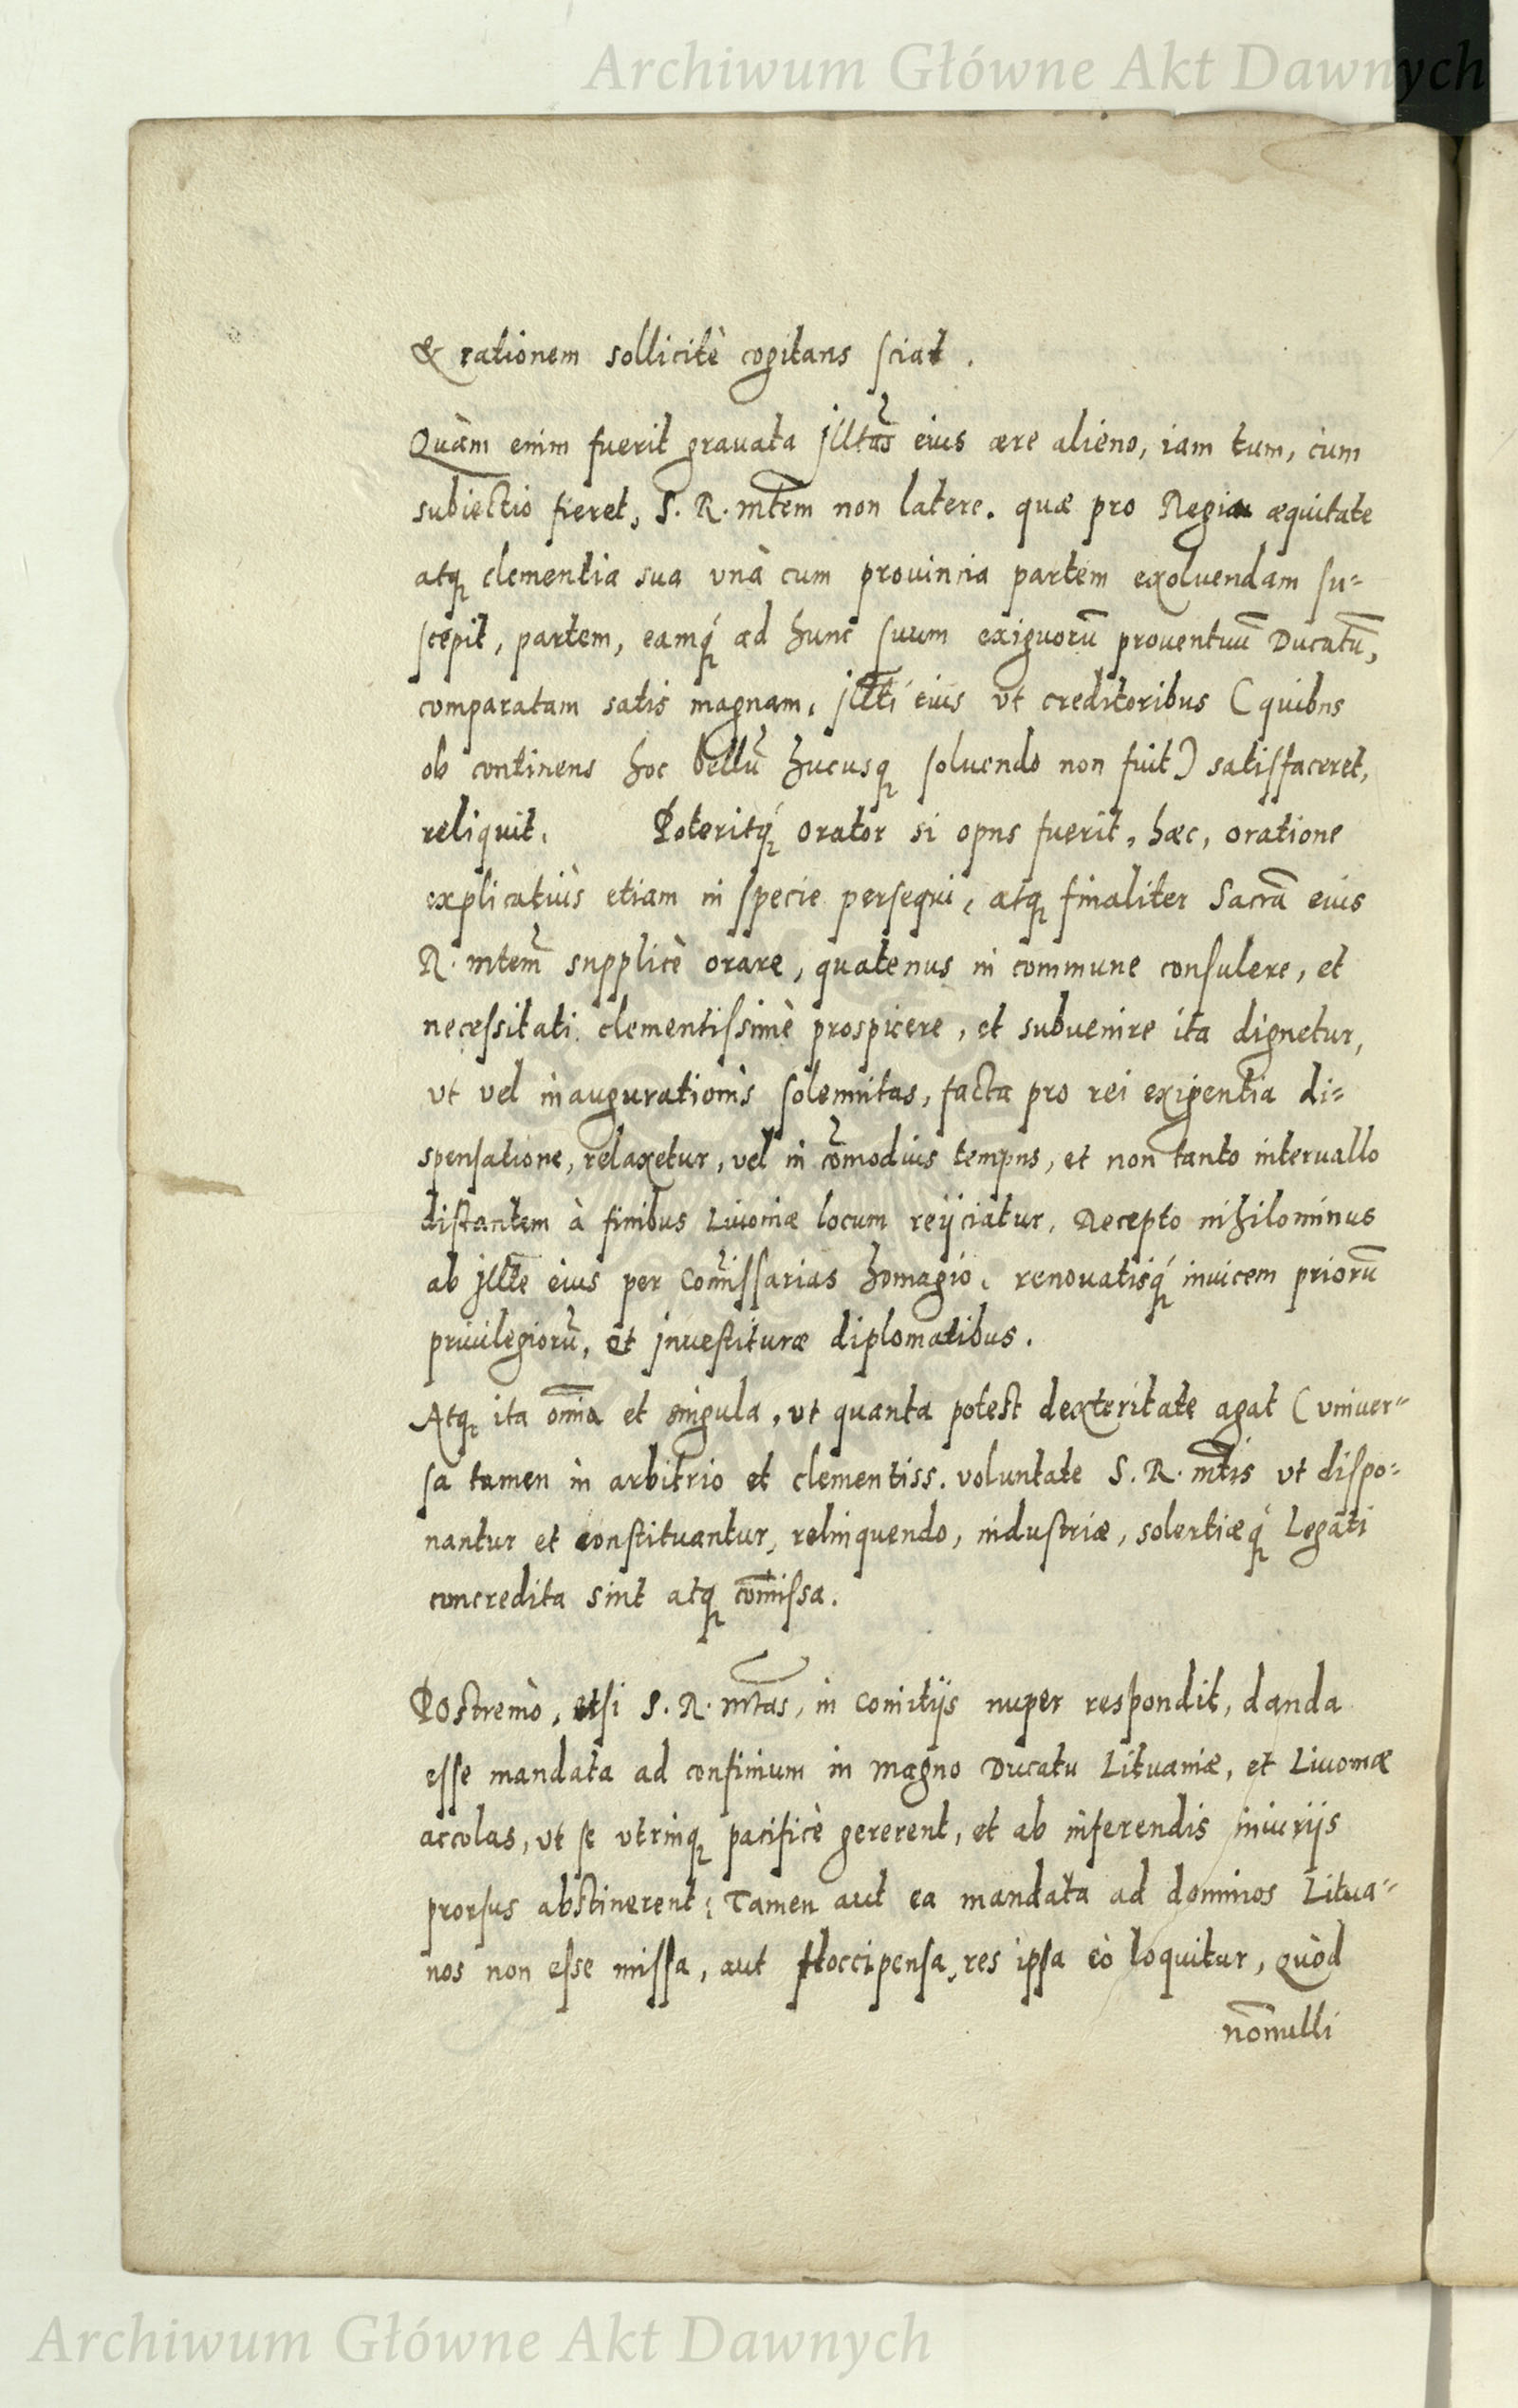 Archiwum Główne Akt Dawnych
& rationem sollicitè cogitans sciat.
Quàm enim fuerit grauata Jlltas eius ære alieno, iam tum, cum
subiectio fieret, S. R. mtem non latere. quæ pro Regia æquitate
atq clementia sua vnà cum prouincia partem exoluendam su=
scepit, partem, eamq́ ad hunc suum exiguorū prouentuū Ducatū,
comparatam satis magnam, Jllti eius vt creditoribus (quibus
ob continens hoc bellū hucusq soluendo non fuit) satisfaceret,
reliquit. Poteritq́ orator si opus fuerit, hæc, oratione
explicatiùs etiam in specie persequi, atq finaliter Sacrā eius
R. mtem supplicè orare, quatenus in commune consulere, et
necessitati clementissimè prospicere, et subuenire ita dignetur,
vt vel inaugurationis solemnitas, facta pro rei exigentia di=
spensatione, relaxetur, vel in com̄odius tempus, et non tanto interuallo
distantem à finibus Liuoniæ locum reijciatur, Recepto nihilominus
ab Jllte eius per Com̄issarios homagio, renouatisq́ inuicem priorū
priuilegiorū, et Jnuestituræ diplomatibus.
Atq ita om̄ia et singula, vt quanta potest dexteritate agat (vniuer=
sa tamen in arbitrio et clementiss. voluntate S. R. mtis vt dispo=
nantur et constituantur, relinquendo, industriæ, solertiæq́ Legati
concredita sint atq com̄issa.
Postremò, etsi S. R. mtas, in Comitijs nuper respondit, danda
esse mandata ad confinium in Magno Ducatu Lituaniæ, et Liuoniæ
accolas, vt se vtrinq pacificè gererent, et ab inferendis iniurijs
prorsus abstinerent; Tamen aut ea mandata ad dominos Litua=
nos non esse missa, aut floccipensa, res ipsa eò loquitur, quòd
nōnulli
Archiwum Główne Akt Dawnych